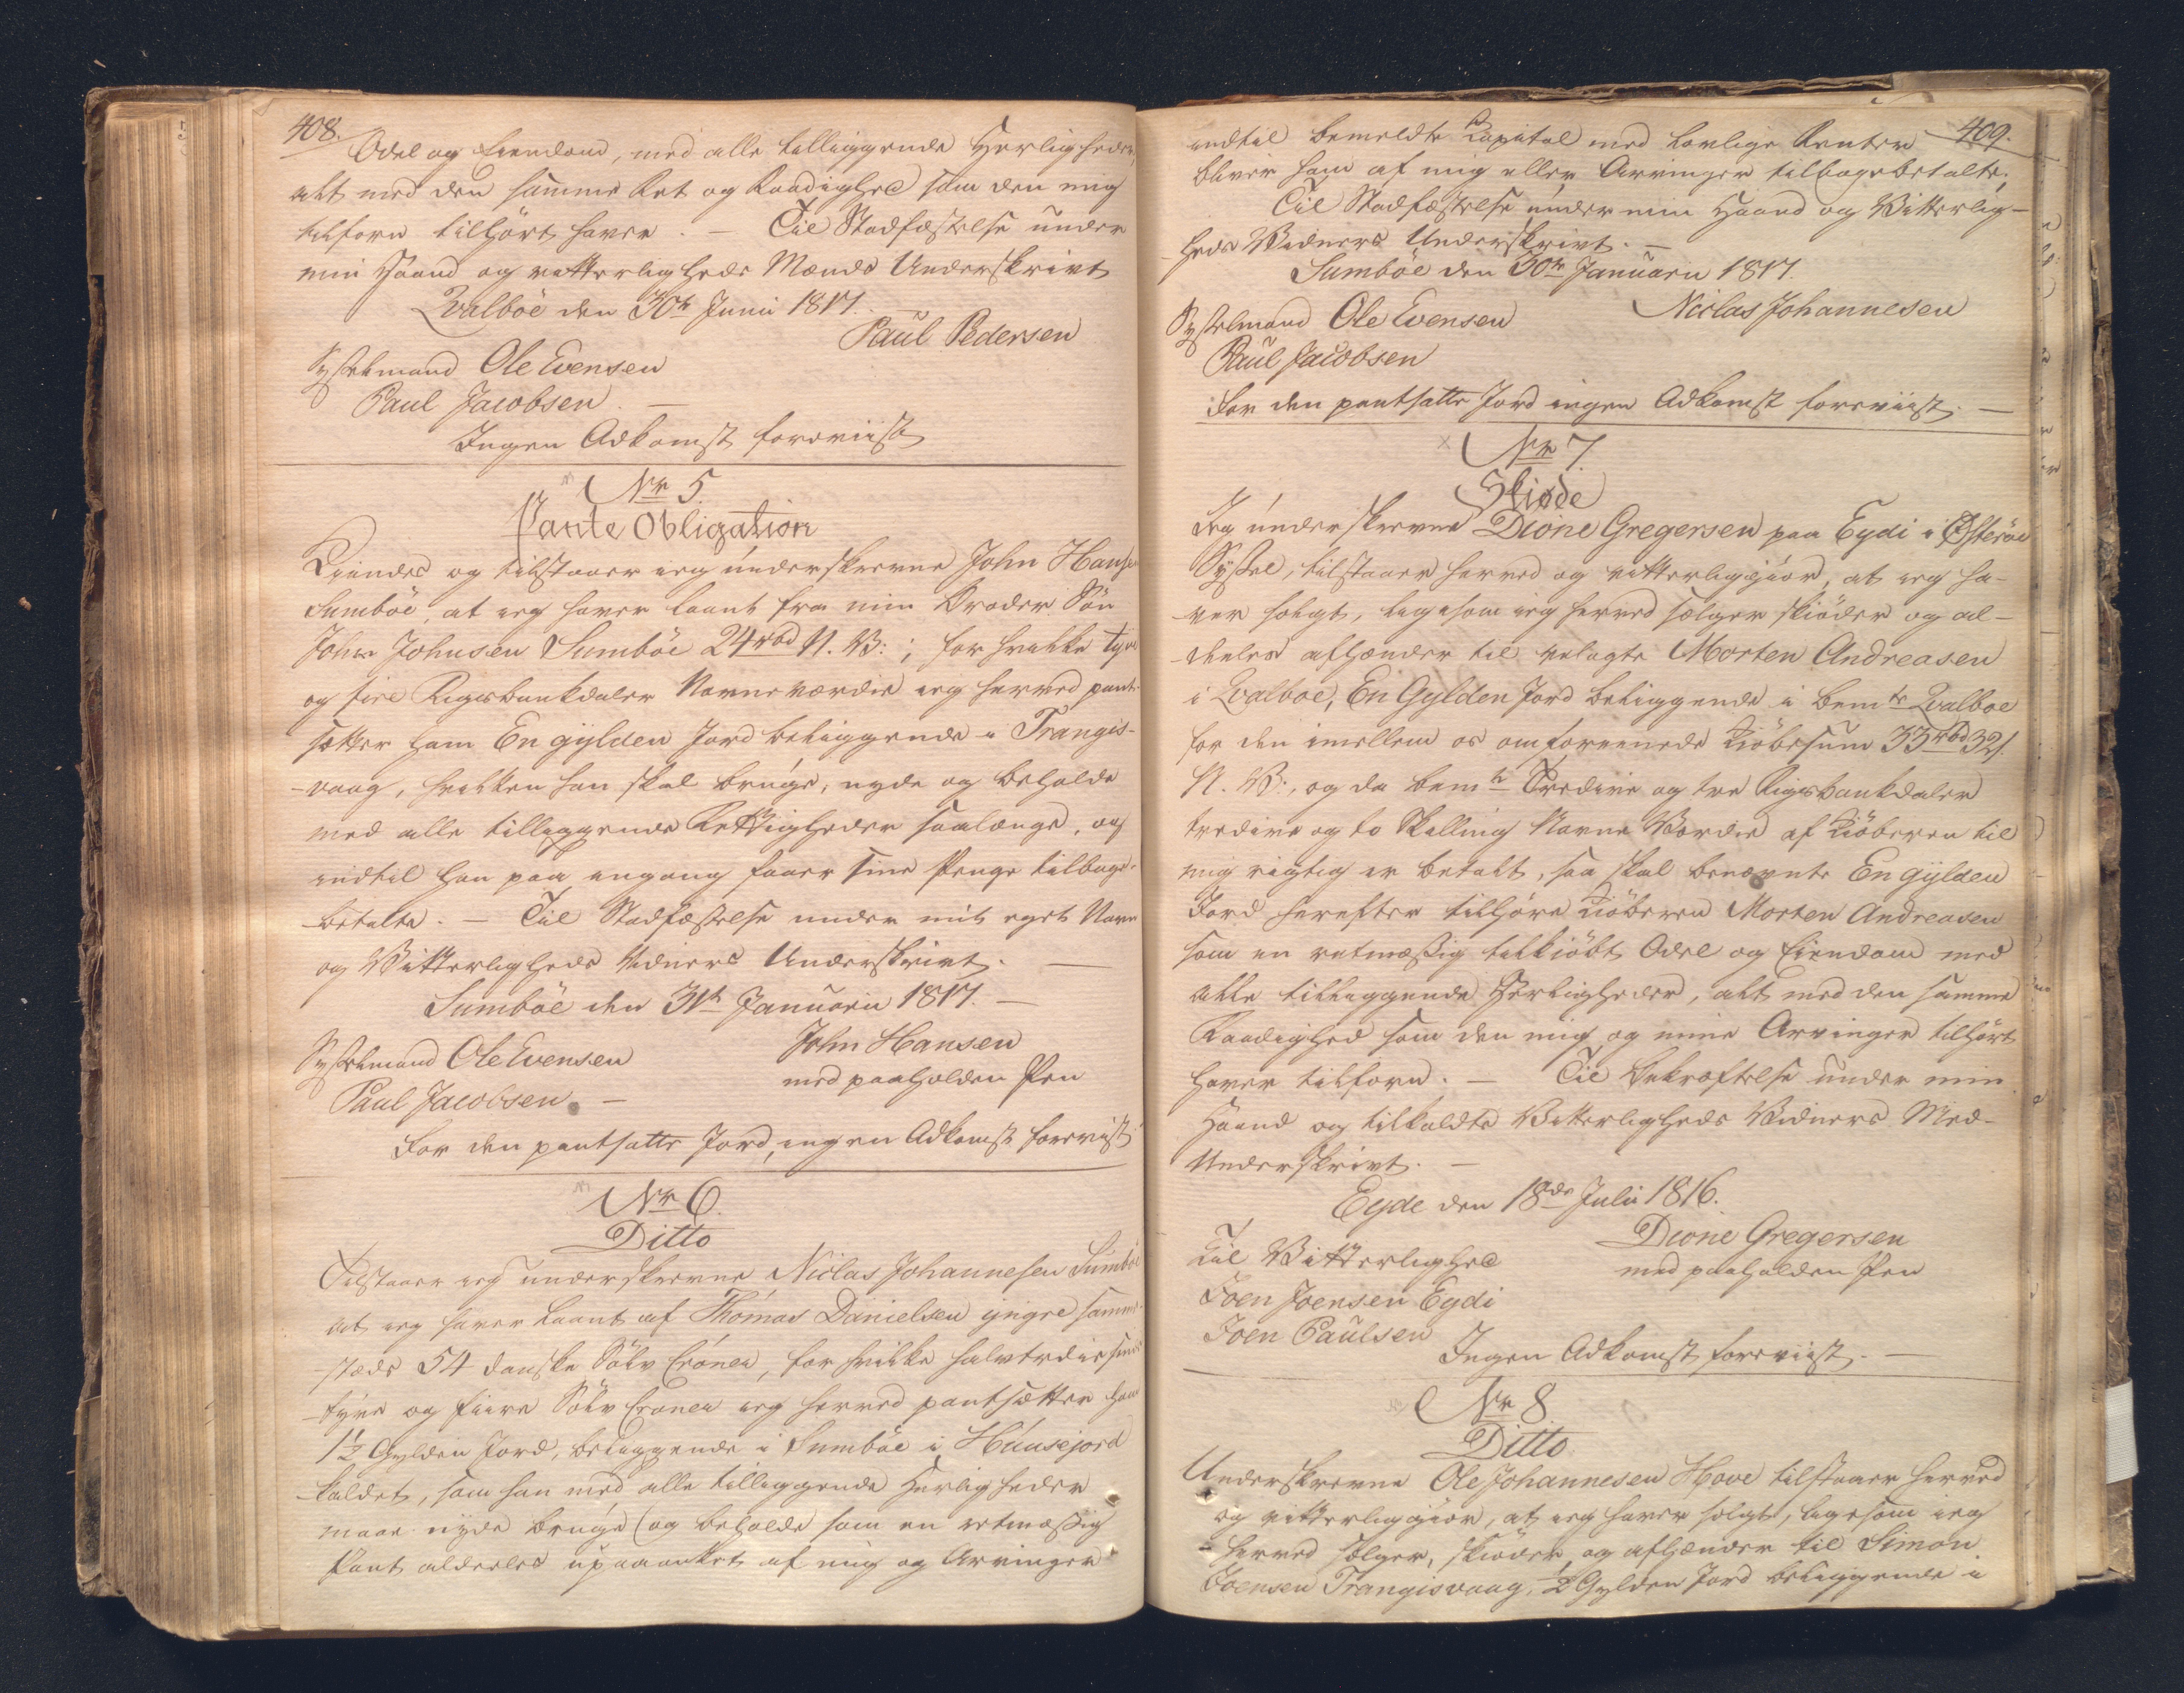 408.
Odel og Eiendom, med alle tilliggende Herligheder,
alt med den samme Ret og Raadighed som den mig
tilforn tilhørt haver. — Til Stadfæstelse under
min Haand og vitterligheds Mænds Underskrivt
Qvalböe den 30te Junii 1817.
Paul Pedersen
Sysselmand Ole Evensen
Paul Jacobsen. —
Ingen Adkomst foreviist
Nr 5.
Pante Obligation
Kiendes og tilstaaer ieg underskrevne John Hansen
Sumböe, at ieg haver laant fra min Broder Sön
John Johnsen Sumböe 24 rbd N. V:; for hvilke tyve
og fire Rigsbankdaler Navneværdie ieg herved pant-
sætter ham En gylden Jord beliggende i Trangis-
-vaag, hvilken han skal bruge, nyde og beholde
med alle tilliggende Rettigheder saalænge, og
indtil han paa engang faaer sine Penge tilbage-
betalte. — Til Stadfæstelse under mit eget Navn
og Vitterligheds Vidners Underskrivt. —
Sumböe den 31te Januarii 1817. —
John Hansen
Sysselmand Ole Evensen
med paaholden Pen
Paul Jacobsen. —
For den pantsatte Jord, ingen Adkomst foreviist
Nr 6.
Ditto
Tilstaaer ieg underskrevne Niclas Johannesen Sumböe
at ieg haver laant af Thomas Danielsen yngre samme-
stæds 54 danske Sölv Croner, for hvilke halvtrediesinds
tyve og fiire Sölv Croner ieg herved pantsætter ham
1½ Gylden Jord, beliggende i Sumböe i Húusejord
kaldet, som han med alle tilliggende Herligheder
maae nyde bruge og beholde som en retmæssig
Pant aldeeles upaaanket af mig og Arvinger
409.
indtil bemeldte Capital med lovlige Renter
bliver ham af mig eller Arvinger tilbagebetalte.
Til Stadfæstelse under min Haand og Vitterlig-
heds Vidners Underskrivt. —
Sumböe den 30te Januarii 1817.
Niclas Johannesen
Sysselmand Ole Evensen
Paul Jacobsen
For den pantsatte Jord ingen Adkomst foreviist. —
Nr 7.
Skiøde
Jeg underskrevne Dione Gregersen paa Eydi i Østeröe
Syssel, tilstaaer herved og vitterliggiör, at ieg ha-
ver solgt, ligesom ieg herved sælger skiöder og al-
deeles afhænder til velagte Morten Andreasen
i Qvalboe, En Gylden Jord beliggende i bemte Qvalboe
for den imellem os omforeenede Kiöbesum 33 rbd 32 s.
N. V:, og da bemte Tredive og tre Rigsbankdaler
tredive og to Skilling Navne Værdie af Kiöberen til
mig rigtig er betalt, saa skal benævnte En gylden
Jord herefter tilhöre Kiöberen Morten Andreasen
som en retmæssig tilkiöbt Odel og Eiendom med
alle tilliggende Herligheder, alt med den samme
Raadighed som den mig og mine Arvinger tilhört
haver tilforn. — Til Bekræftelse under min
Haand og tilkaldte Vitterligheds Vidners Med-
Underskrivt. —
Eyde den 18de Julii 1816.
Dione Gregersen
Til Vitterlighed
med paaholden Pen
Joen Joensen Eydi
Joen Paulsen
Ingen Adkomst foreviist. —
Nr 8
Ditto
Underskrevne Ole Johannesen Hove tilstaaer herved
og vitterliggiör, at ieg haver solgt, ligesom ieg
herved sælger, skiöder og afhænder til Simon
Joensen Trangisvaag, ½ Gylden Jord beliggende i